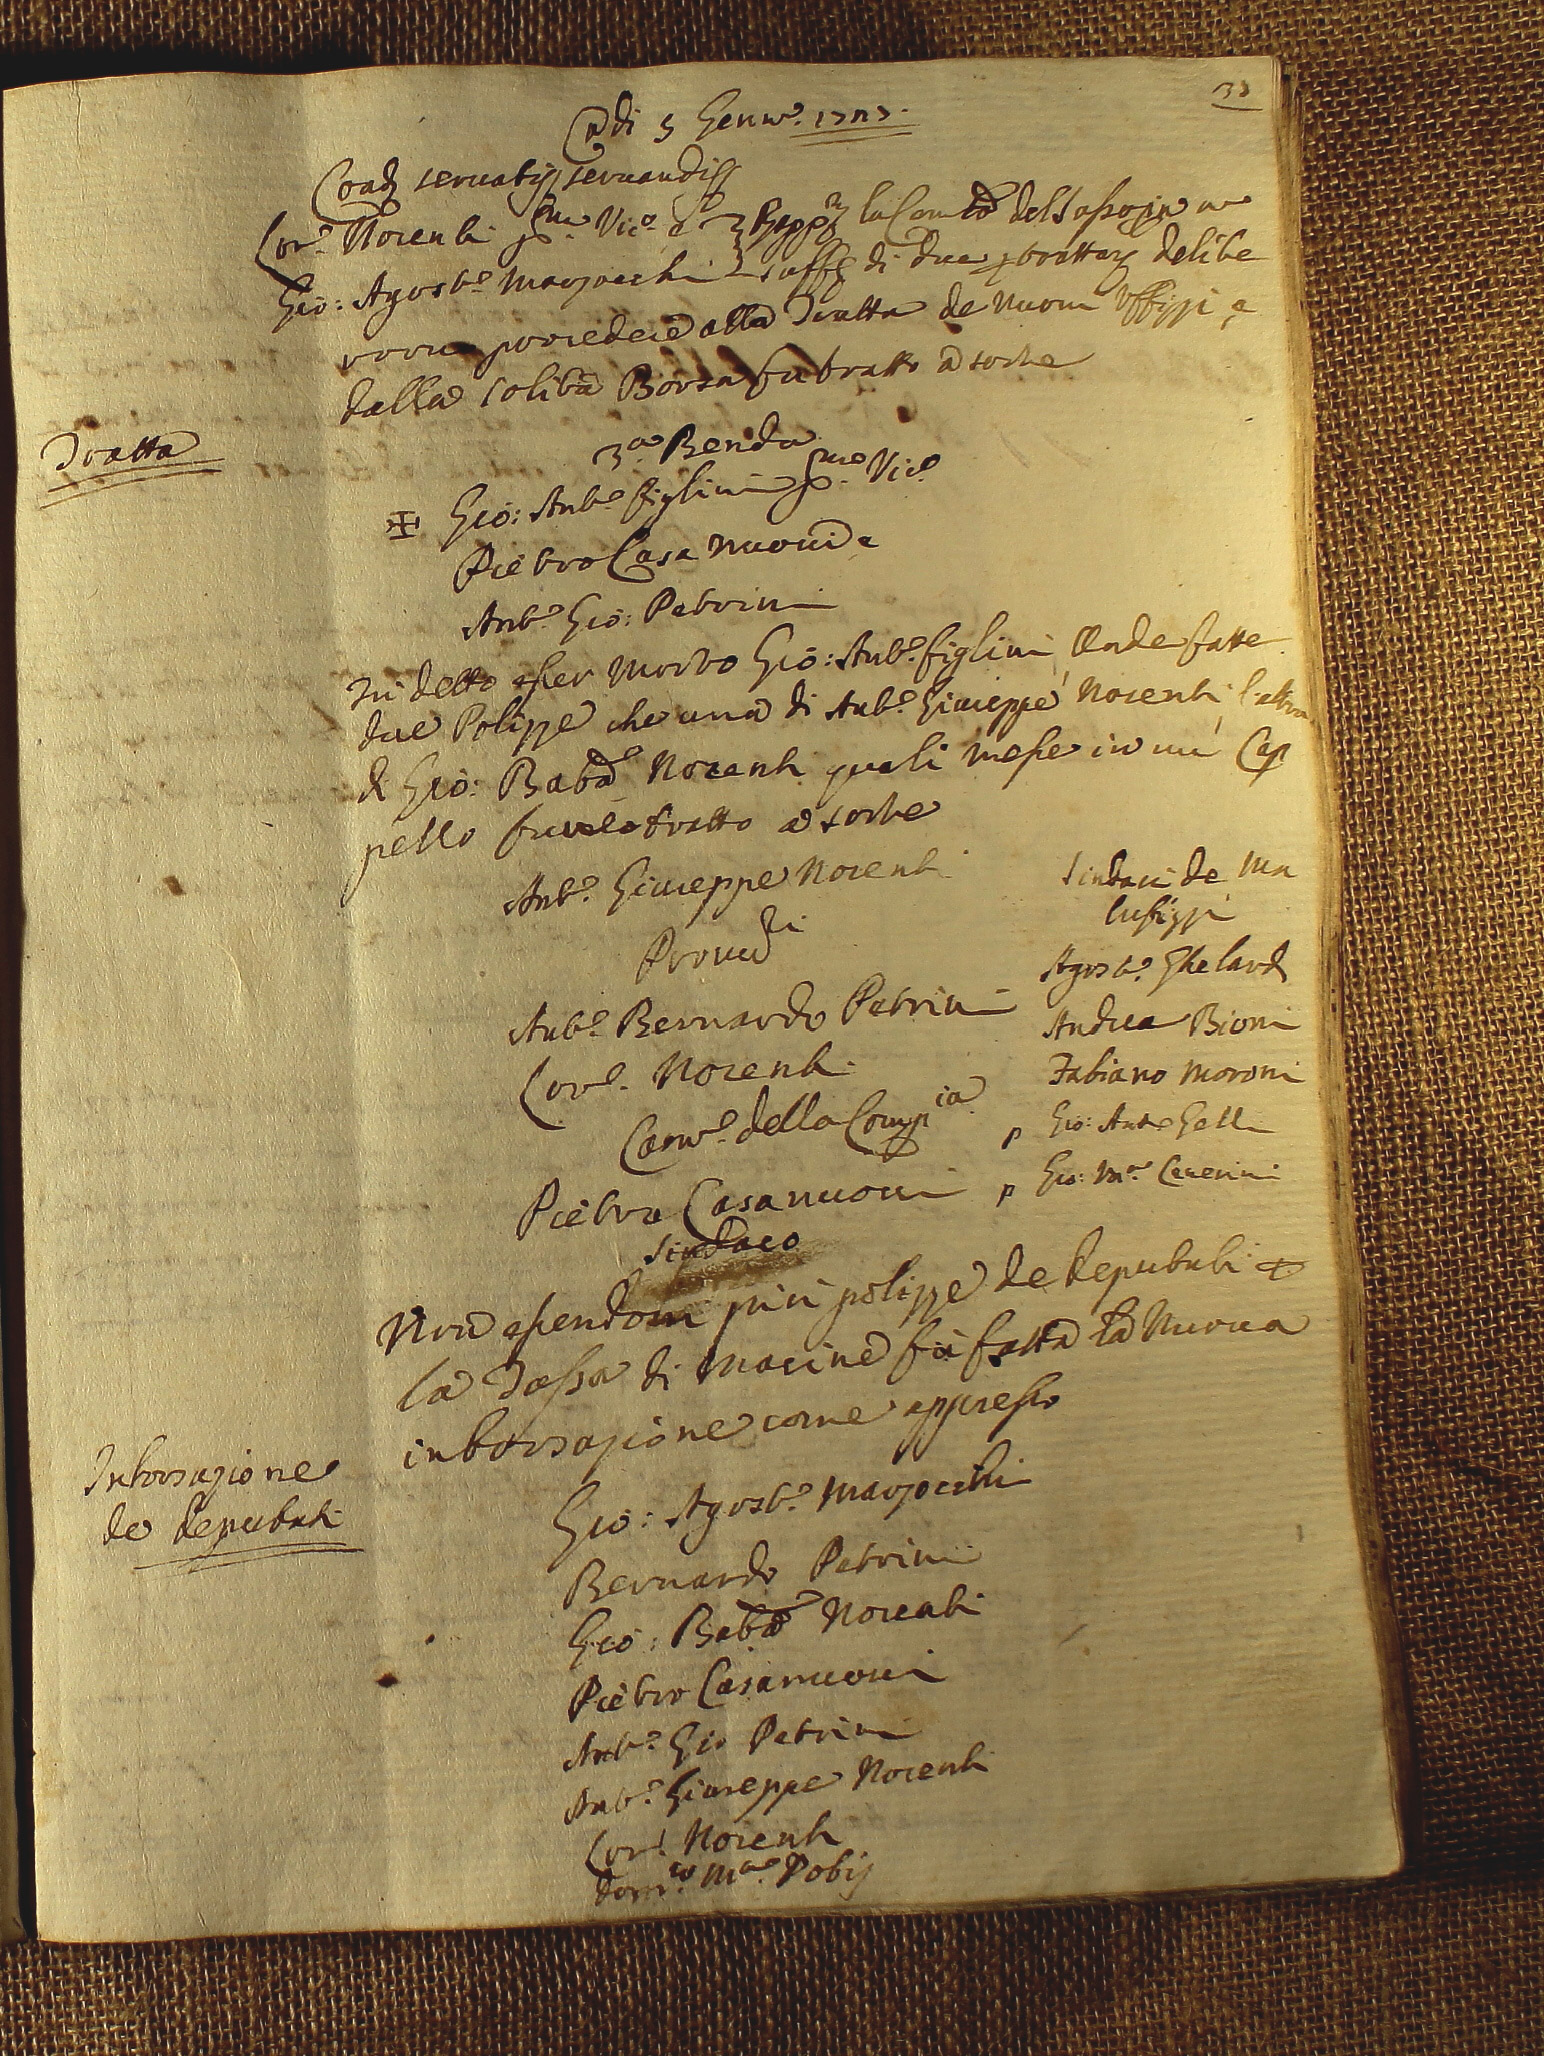 33
Adì 5 Genn.o 1717.
Coad. servatis servandis
Lor.o Nocenti p.mo Vic.o e Rapp.ti la Com.tà del Sasso in n.o
Gio: Agost.o Marzocchi suff. di due p trattar delibe
rorno procedere alla Tratta de Nuovi Uffizzi e
dalla solita Borsa fu tratto a sorte
Tratta
3.a Benda
Gio: Ant.o figlini p.mo Vic.o
Pietro Casa nuovi e
Ant.o Gio: Petrini
Fu detto esser Morto Gio: Ant.o figlini Onde fatte
due Polizze che una di Ant.o Giuseppe Nocenti l'altra
di Gio: Batta Nocenti quali messe in un Cap
pello fu tratto a sorte
Ant.o Giuseppe Nocenti
Proved.ri
Ant.o Bernardo Petrini
Lor.o Nocenti
Cam.o della Comp.ia
Pietro Casanuovi
Sindaco
Sindaci de Ma
lefizzi
Agost.o Ghelardi
Andrea Bioni
Fabiano Moroni
p Gio: Ant.o Galli
p Gio: M.a Ceverini
Non essendovi più polizze de deputati p
la Tassa di Macine fù fatta la Nuova
inborsazione come appresso
Inborsazione
de deputati
Gio: Agost.o Marzocchi
Bernardo Petrini
Gio: Batta Nocenti
Pietro Casanuovi
Ant.o Gio Petrini
Ant.o Giuseppe Nocenti
Lor.o Nocenti
Dom.co M.a Pobij